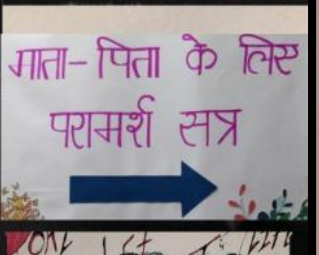 माता-पिता के लिए
परामर्श सत्र